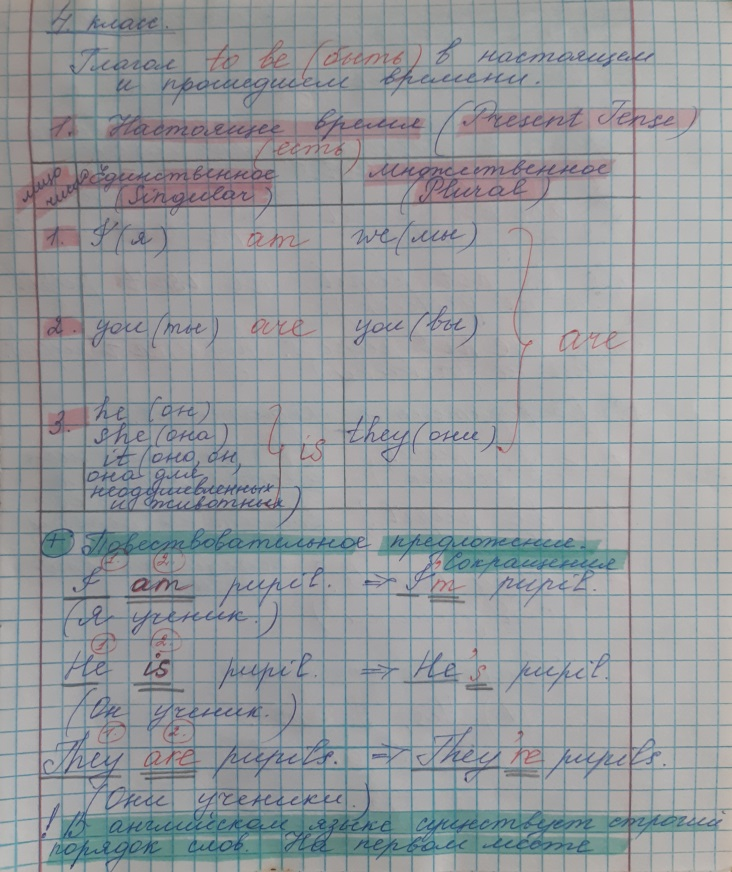 4 класс.
Глагол to be (быть) в настоящем
и прошедшем времени.
1. Настоящее время (Present Tense)
(есть)
лицо число Единственное (Singular) множественное (Plural)
1. I (я) am we (мы)
2. you (ты) are you (вы) are
3. he (он)
she (она) is they (они)
it (оно, он,
она для
неодушевленных
и животных)
+ Повествовательное предложение.
Сокращения
1. 2.
I am pupil. ⇒ I'm pupil.
(Я ученик.)
1. 2.
He is pupil. ⇒ He's pupil.
(Он ученик.)
1. 2.
They are pupils. ⇒ They're pupils.
(Они ученики.)
! В английском языке существует строгий
порядок слов. На первом месте